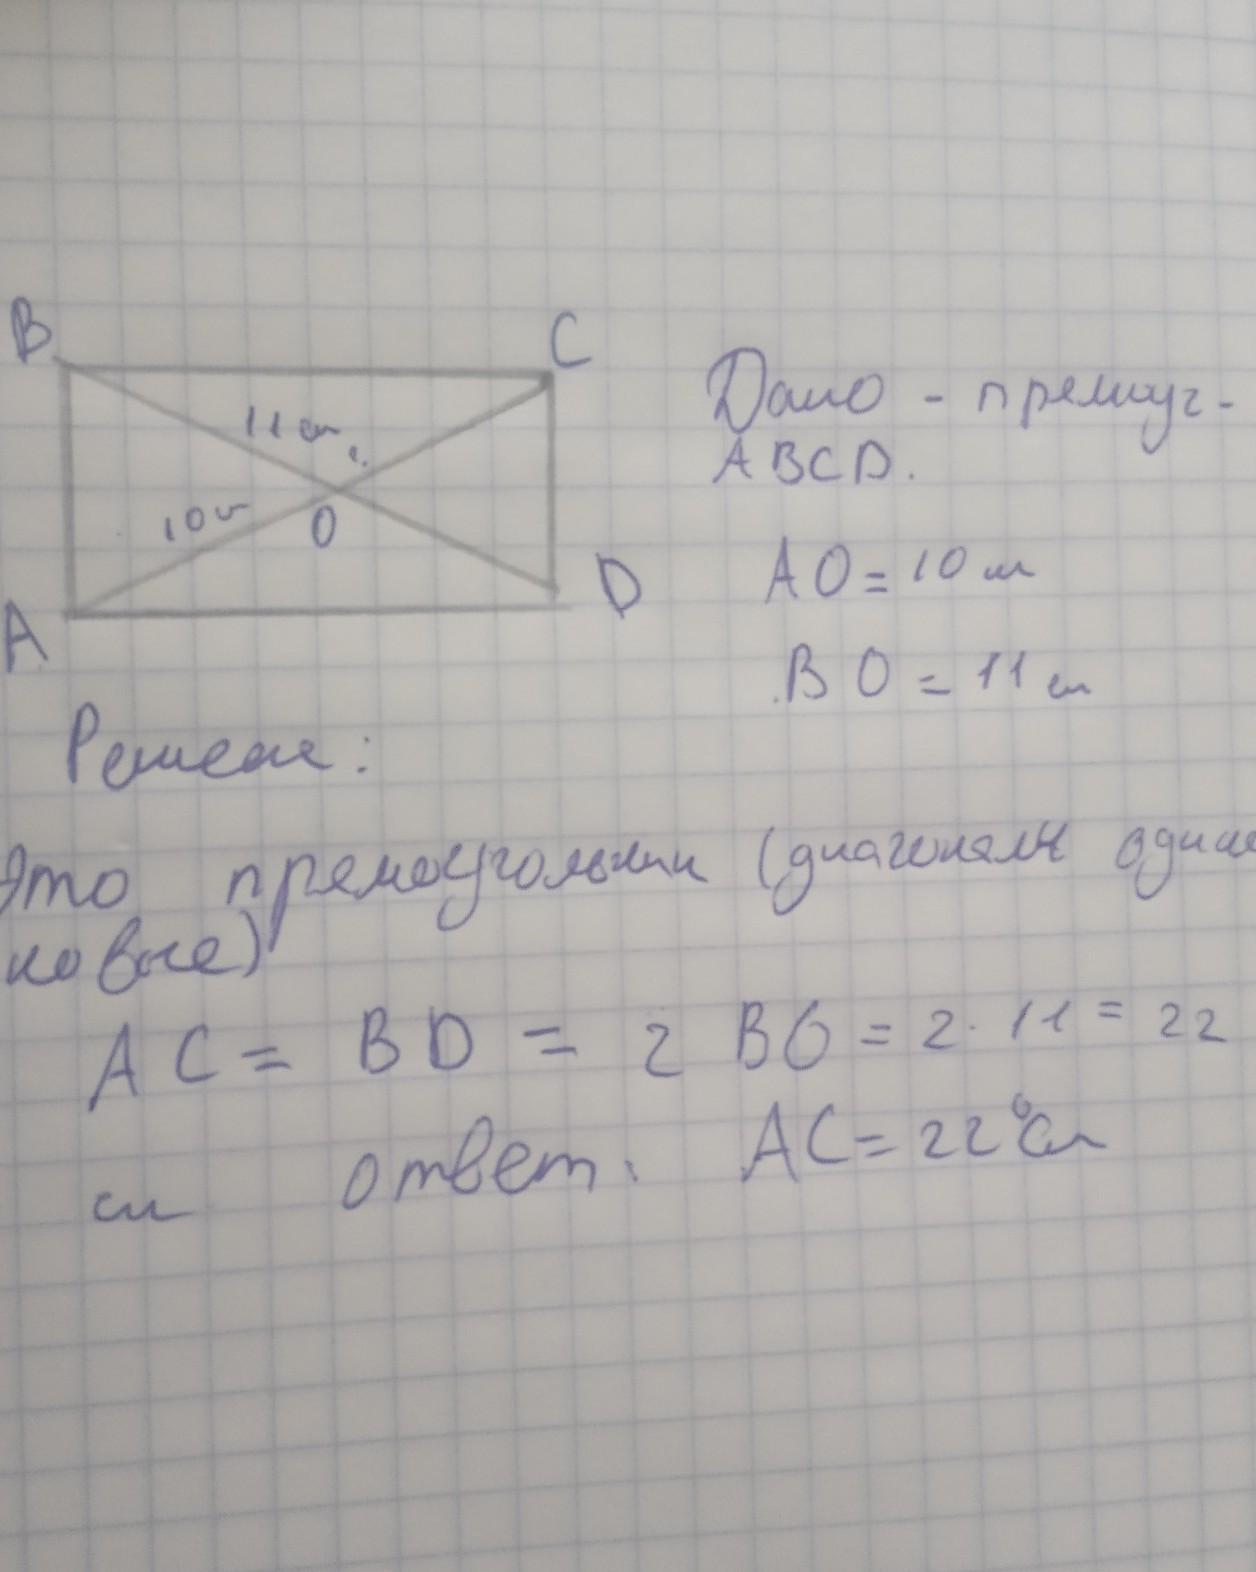 B
C
11 см
10 см
O
A
D
Дано - прямоуг-
ABCD.
AO = 10 см
BO = 11 см
Решение:
Это прямоугольник (диагонали одина
ковые)
AC = BD = 2 BO = 2 · 11 = 22
см ответ: AC = 22 см